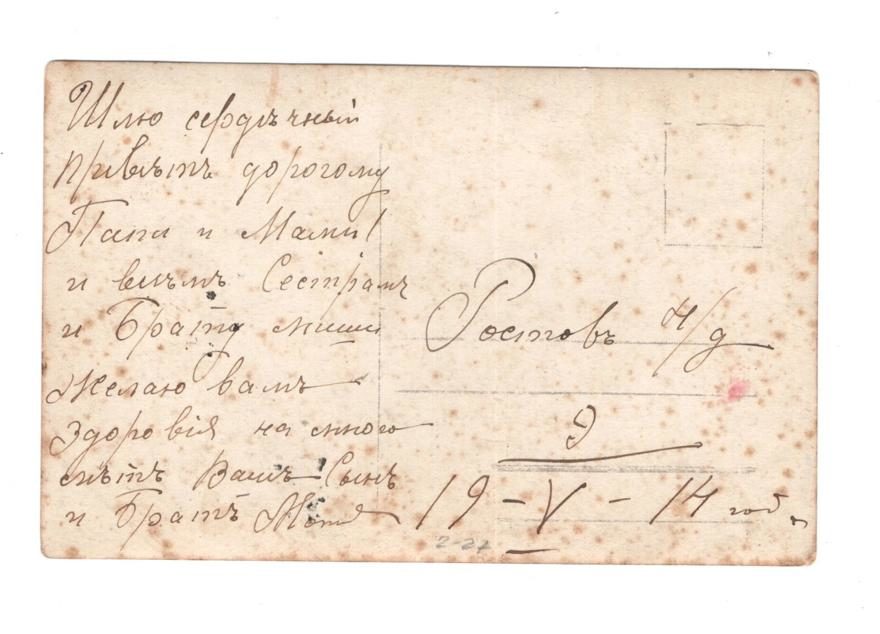 Шлю сердѣчный
привѣтъ дорогому
Папи и Мами!
и всѣмъ Сестрамъ
и Брату миши
Желаю вамъ
Здоровія на много
лѣтъ Вашъ Сынъ
и Братъ
Ростовъ н/д
19 – V – 14 год.
2-27